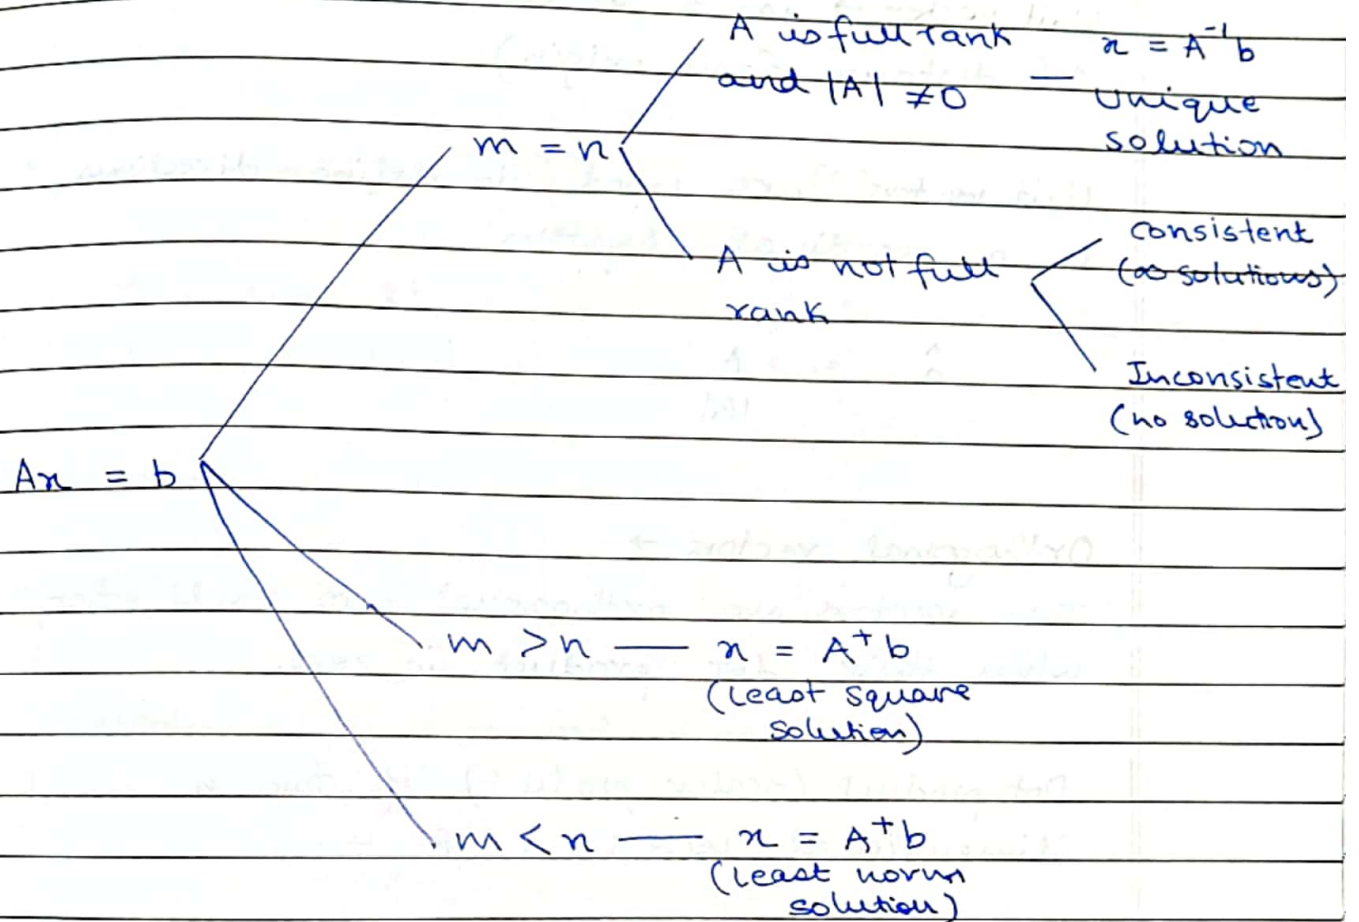 A is full rank
and |A| ≠ 0 — x = A⁻¹b
unique
solution
m = n
A is not full
rank
consistent
(∞ solutions)
Inconsistent
(no solution)
Ax = b
m > n — x = A⁺b
(least square
solution)
m < n — x = A⁺b
(least norm
solution)